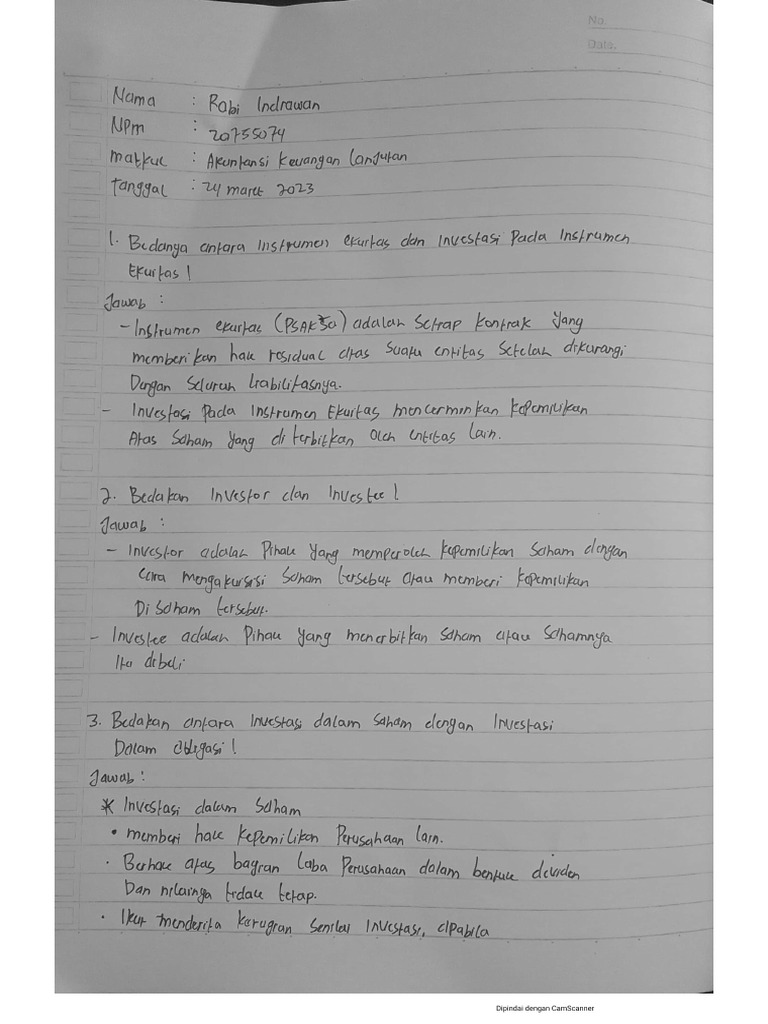 No.
Date.
Nama : Robi Indrawan
NPM : 20755074
matkul : Akuntansi Keuangan Lanjutan
tanggal : 24 maret 2023
1. Bedanya antara Instrumen ekuitas dan Investasi Pada Instrumen
Ekuitas !
Jawab :
- Instrumen ekuitas (PSAK 50) adalah Setiap kontrak yang
memberikan hak residual atas Suatu entitas Setelah dikurangi
Dengan Seluruh liabilitasnya.
- Investasi Pada Instrumen Ekuitas mencerminkan kepemilikan
Atas Saham yang di terbitkan oleh entitas lain.
2. Bedakan Investor dan Investee !
Jawab :
- Investor adalah Pihak yang memperoleh kepemilikan Saham dengan
cara mengakuisisi Saham tersebut atau memberi kepemilikan
Di Saham tersebut.
- Investee adalah Pihak yang menerbitkan Saham atau Sahamnya
Itu dibeli
3. Bedakan antara Investasi dalam Saham dengan Investasi
Dalam Obligasi !
Jawab :
* Investasi dalam Saham
• memberi hak kepemilikan Perusahaan lain.
• Berhak atas bagian laba Perusahaan dalam bentuk dividen
Dan nilainya tidak tetap.
• Ikut menderita kerugian Senilai Investasi, apabila
Dipindai dengan CamScanner